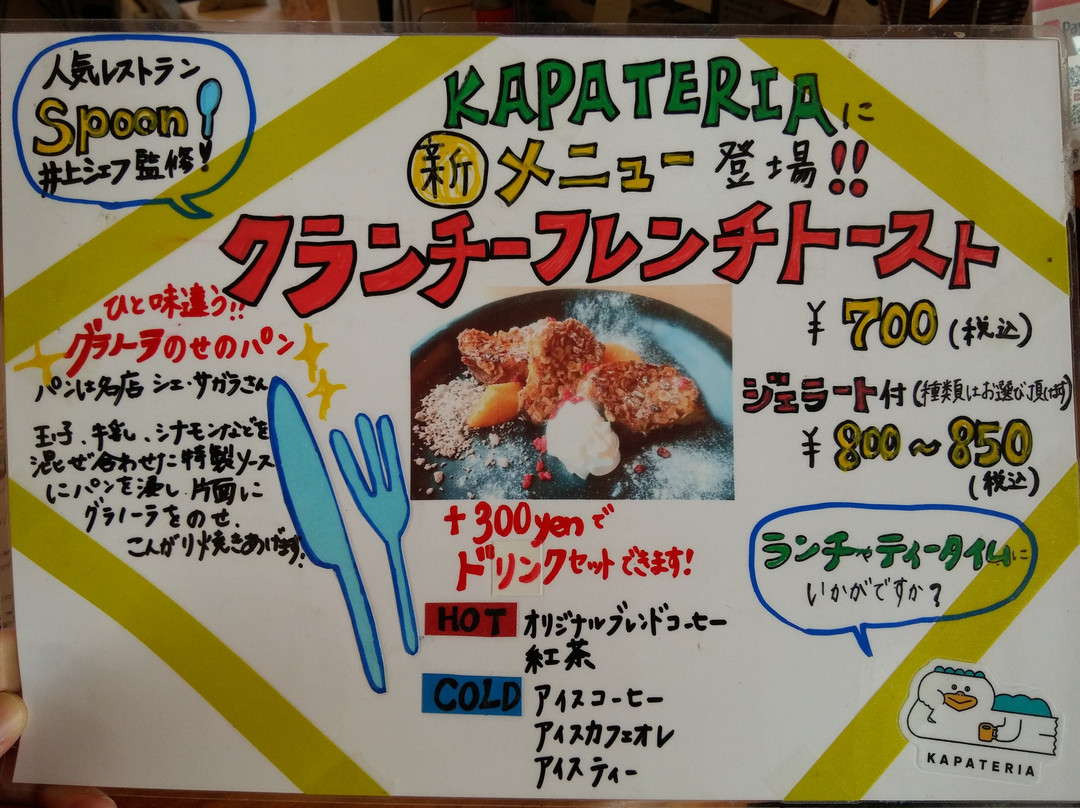 人気レストラン
Spoon!
井上シェフ監修!
KAPATERIAに
新メニュー登場!!
クランチーフレンチトースト
ひと味違う!!
グラノーラのせのパン
パンは名店 シェ・サガラさん
玉子、牛乳、シナモンなどを
混ぜ合わせた特製ソース
にパンを浸し片面に
グラノーラをのせ、
こんがり焼きあげます!
¥700(税込)
ジェラート付(種類はお選び頂けます)
¥800~850
(税込)
+300yenで
ドリンクセットできます!
HOT オリジナルブレンドコーヒー
紅茶
COLD アイスコーヒー
アイスカフェオレ
アイスティー
ランチやティータイムに
いかがですか?
KAPATERIA